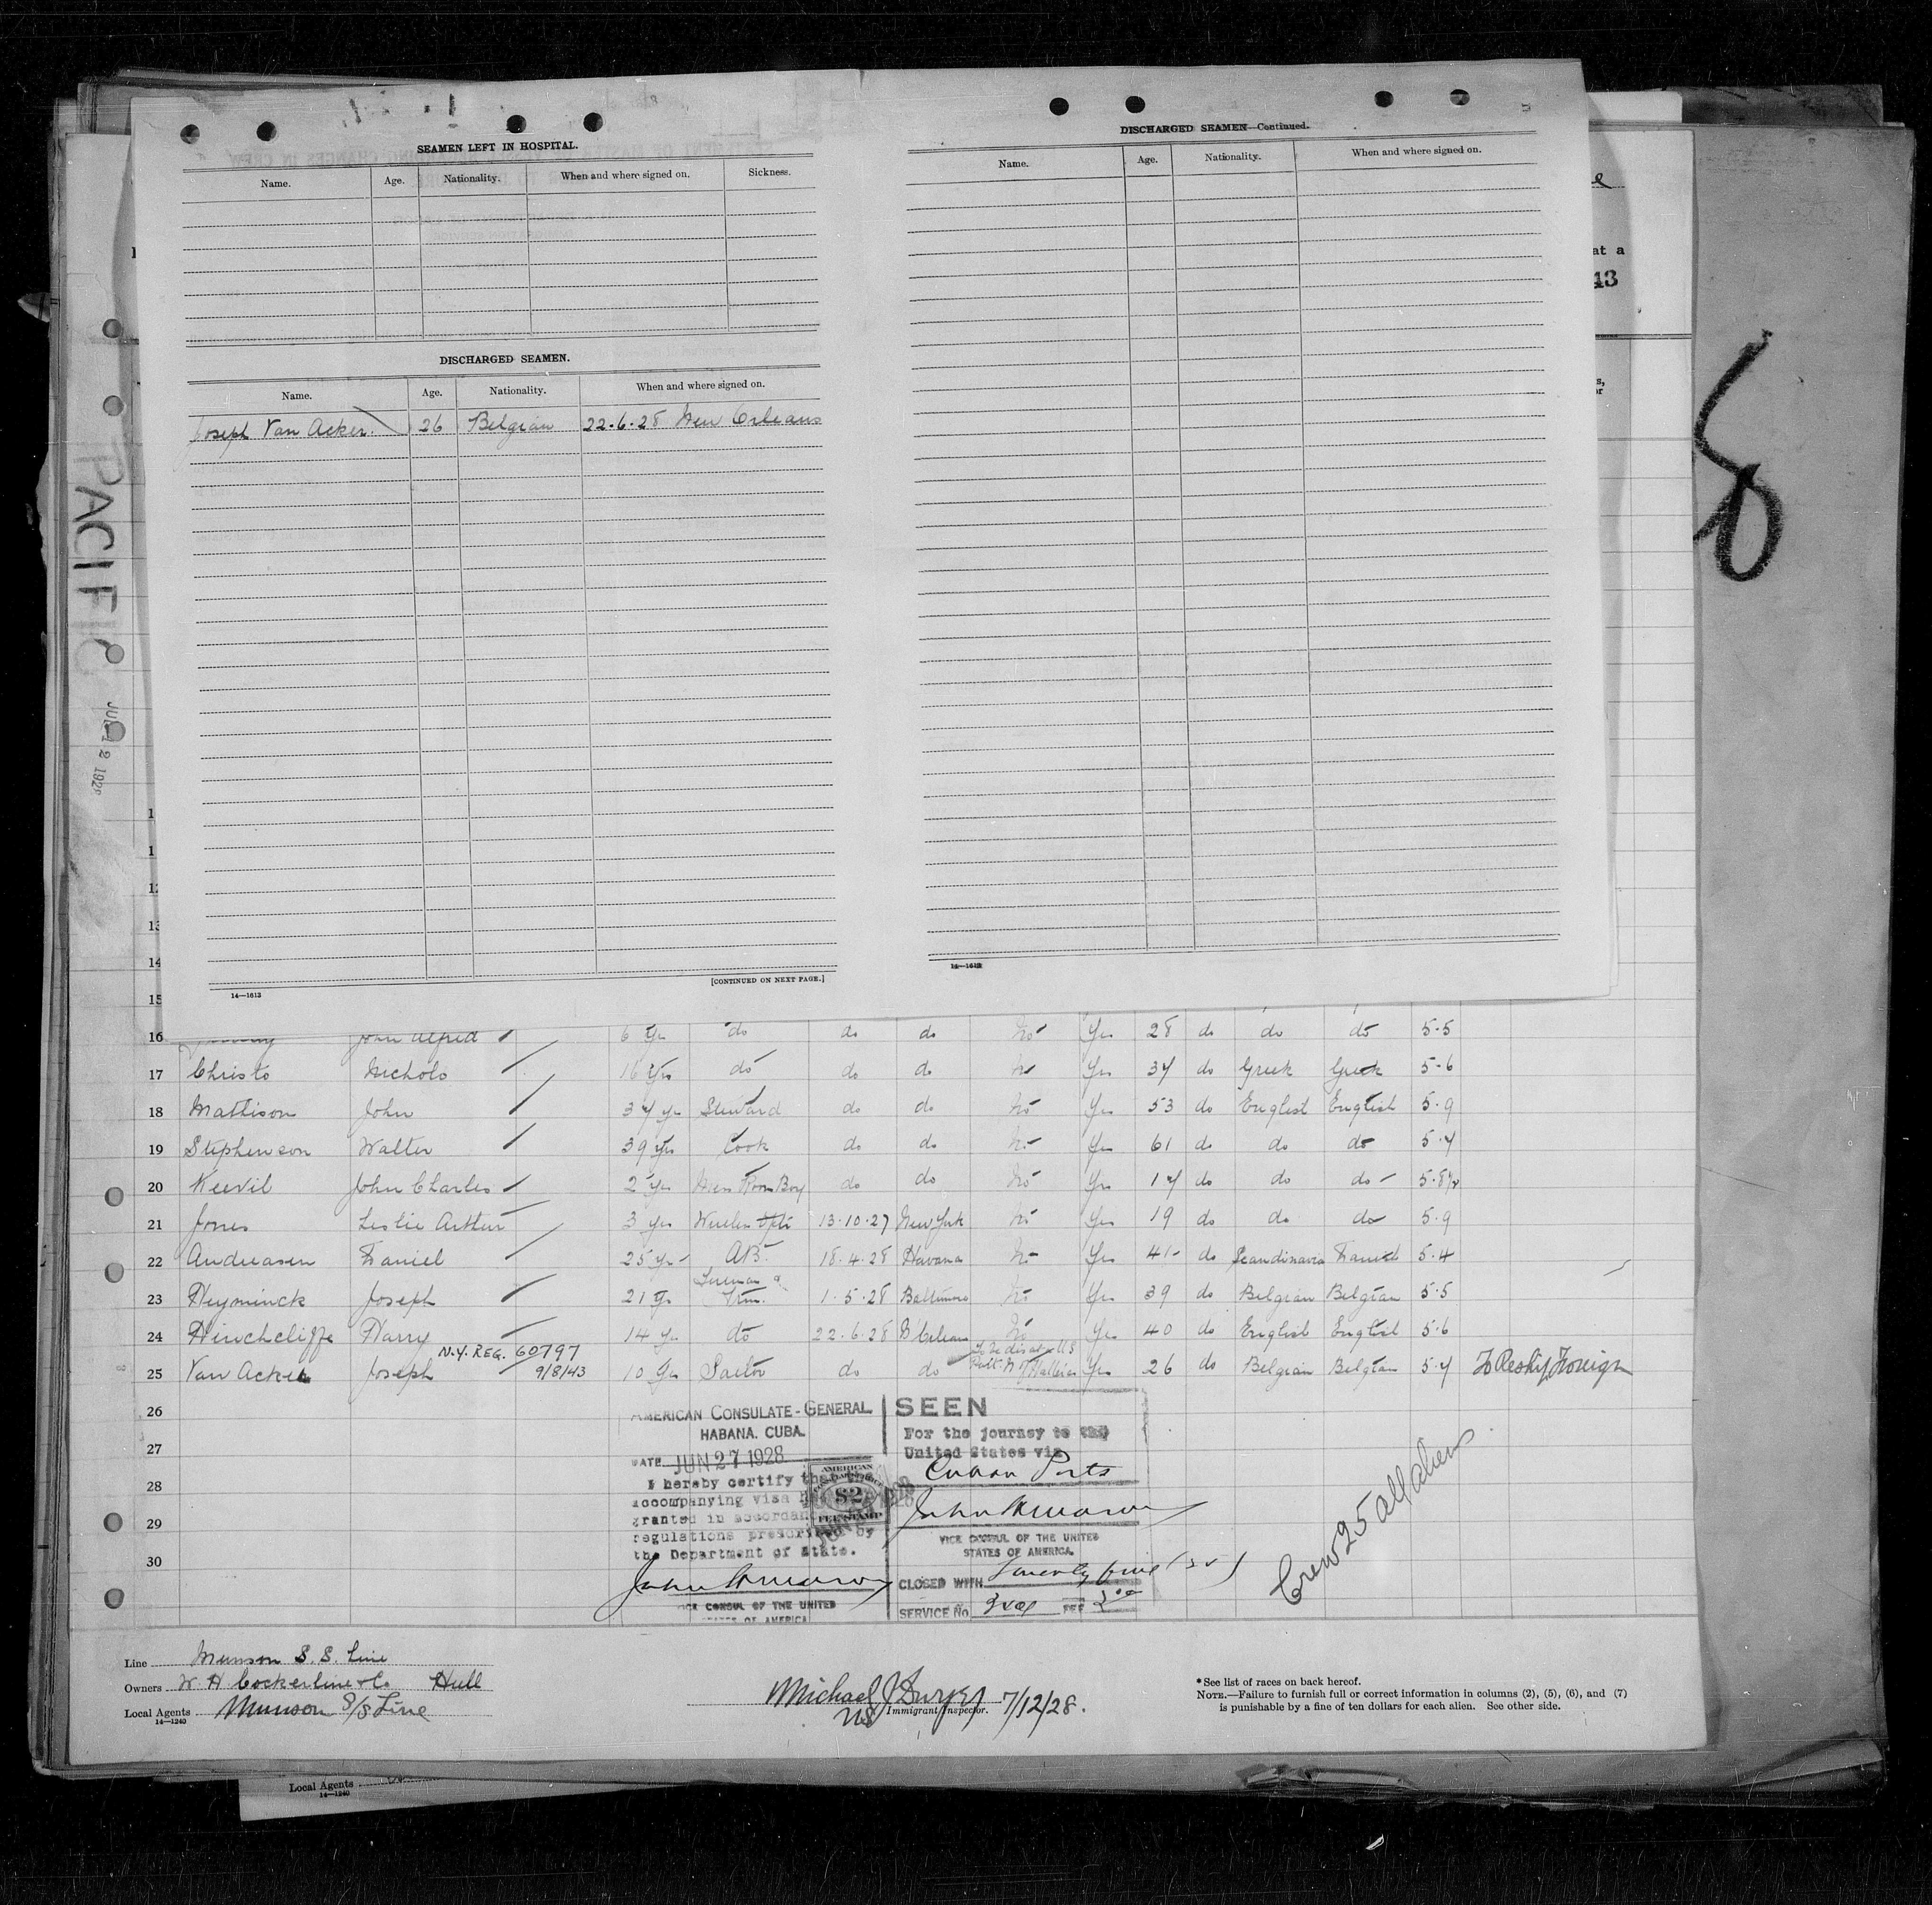 SEAMEN LEFT IN HOSPITAL.
Name. Age. Nationality. When and where signed on. Sickness.
DISCHARGED SEAMEN.
Name. Age. Nationality. When and where signed on.
Joseph Van Acker. 26 Belgian 22.6.28 New Orleans
[CONTINUED ON NEXT PAGE.]
14—1613
DISCHARGED SEAMEN—Continued.
Name. Age. Nationality. When and where signed on.
14—1613
at a
43
8
PACIFIC
JUL 12 1928
12
13
14
15
16 John Alfred 6 Yrs do do do No Yes 28 do do do 5-5
17 Christo Nicholo 16 Yrs do do do No Yes 34 do Greek Greek 5-6
18 Mathison John 34 yr Steward do do No Yes 53 do English English 5.9
19 Stephenson Walter 39 yrs Cook do do No Yes 61 do do do 5.4
20 Keevil John Charles 2 yrs Mess Room Boy do do No Yes 17 do do do 5.8½
21 Jones Leslie Arthur 3 yrs Wireless Opt. 13.10.27 New York No Yes 19 do do do 5.9
22 Andreasen Daniel 25 yr AB. 18.4.28 Havana No Yes 41 do Scandinavian Danish 5.4
23 Heyminck Joseph 21 Yr Fireman & Trim. 1.5.28 Baltimore No Yes 39 do Belgian Belgian 5.5
24 Hinchcliffe Harry 14 Yr do 22.6.28 N'Orleans No Yes 40 do English English 5.6
N.Y. REG. 60797
25 Van Acker Joseph 9/8/43 10 Yrs Sailor do do Yes 26 do Belgian Belgian 5.4 To Reship Foreign
26
27
28
29
30
AMERICAN CONSULATE-GENERAL
HABANA, CUBA.
DATE JUN 27 1928
I hereby certify that the
accompanying visa has
granted in accordance
regulations prescribed by
the Department of State.
VICE CONSUL OF THE UNITED
STATES OF AMERICA
AMERICAN
$2
FEE STAMP
SEEN
For the journey to the
United States via
Cuban Ports
VICE CONSUL OF THE UNITED
STATES OF AMERICA.
CLOSED WITH Twenty five (25)
SERVICE No. FEE 2.00
Crew 25 all aliens
Line Munson S. S. Line
Owners W. H Cockerline & Co Hull
Local Agents Munson S/S Line
14—1240
Michael J Dwyer 7/12/28.
Immigrant Inspector.
*See list of races on back hereof.
NOTE.—Failure to furnish full or correct information in columns (2), (5), (6), and (7)
is punishable by a fine of ten dollars for each alien. See other side.
Local Agents
14—1240